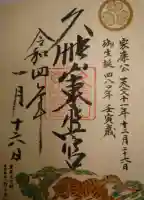 家康公 天文十一年十二月二十六日
御生誕 四八〇年 壬寅歳
久能山東照宮
令和四年
一月十六日